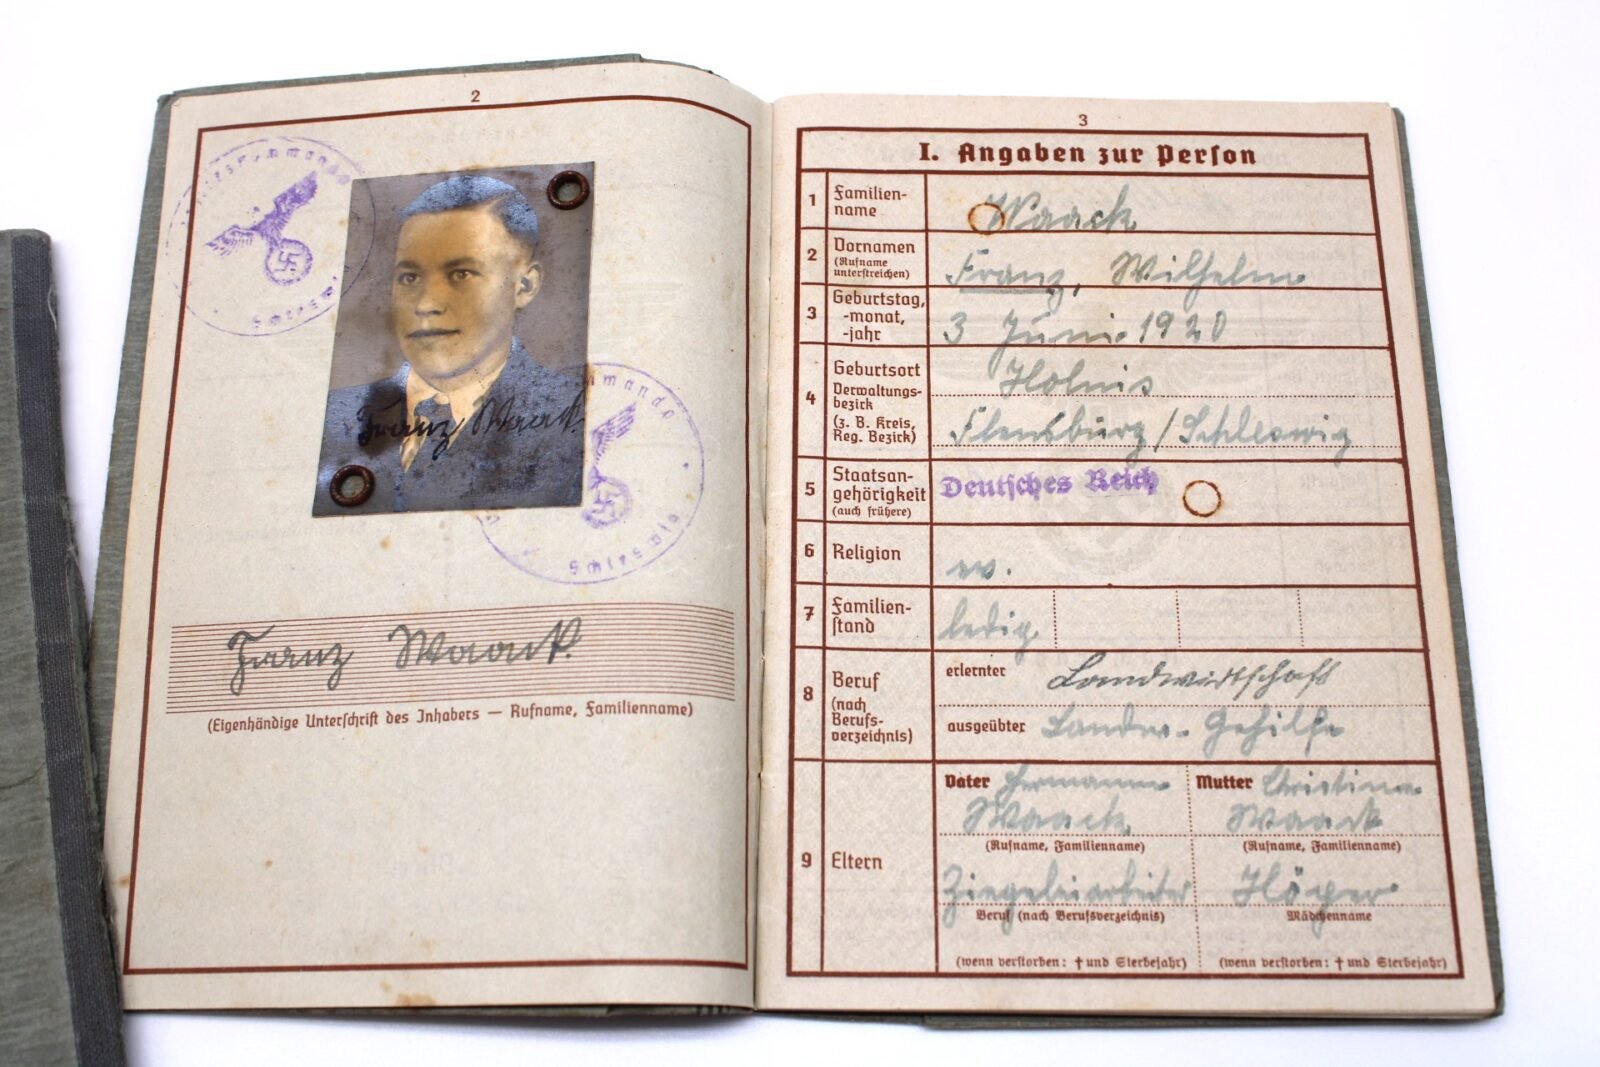 2
Franz Waack
Franz Waack
(Eigenhändige Unterschrift des Inhabers — Rufname, Familienname)
3
I. Angaben zur Person
1 Familien-
name
Waack
2 Vornamen
(Rufname
unterstreichen)
Franz, Wilhelm
3 Geburtstag,
-monat,
-jahr
3 Juni 1920
4 Geburtsort
Verwaltungs-
bezirk
(z. B. Kreis,
Reg. Bezirk)
Holnis
Flensburg/Schleswig
5 Staatsan-
gehörigkeit
(auch frühere)
Deutsches Reich
6 Religion
ev.
7 Familien-
stand
ledig
8 Beruf
(nach
Berufs-
verzeichnis)
erlernter Landwirtschaft
ausgeübter Landw.-Gehilfe
9 Eltern
Vater Hermann
Waack
(Rufname, Familienname)
Ziegeleiarbeiter
Beruf (nach Berufsverzeichnis)
(wenn verstorben: † und Sterbejahr)
Mutter Christine
Waack
(Rufname, Familienname)
Mädchenname
(wenn verstorben: † und Sterbejahr)